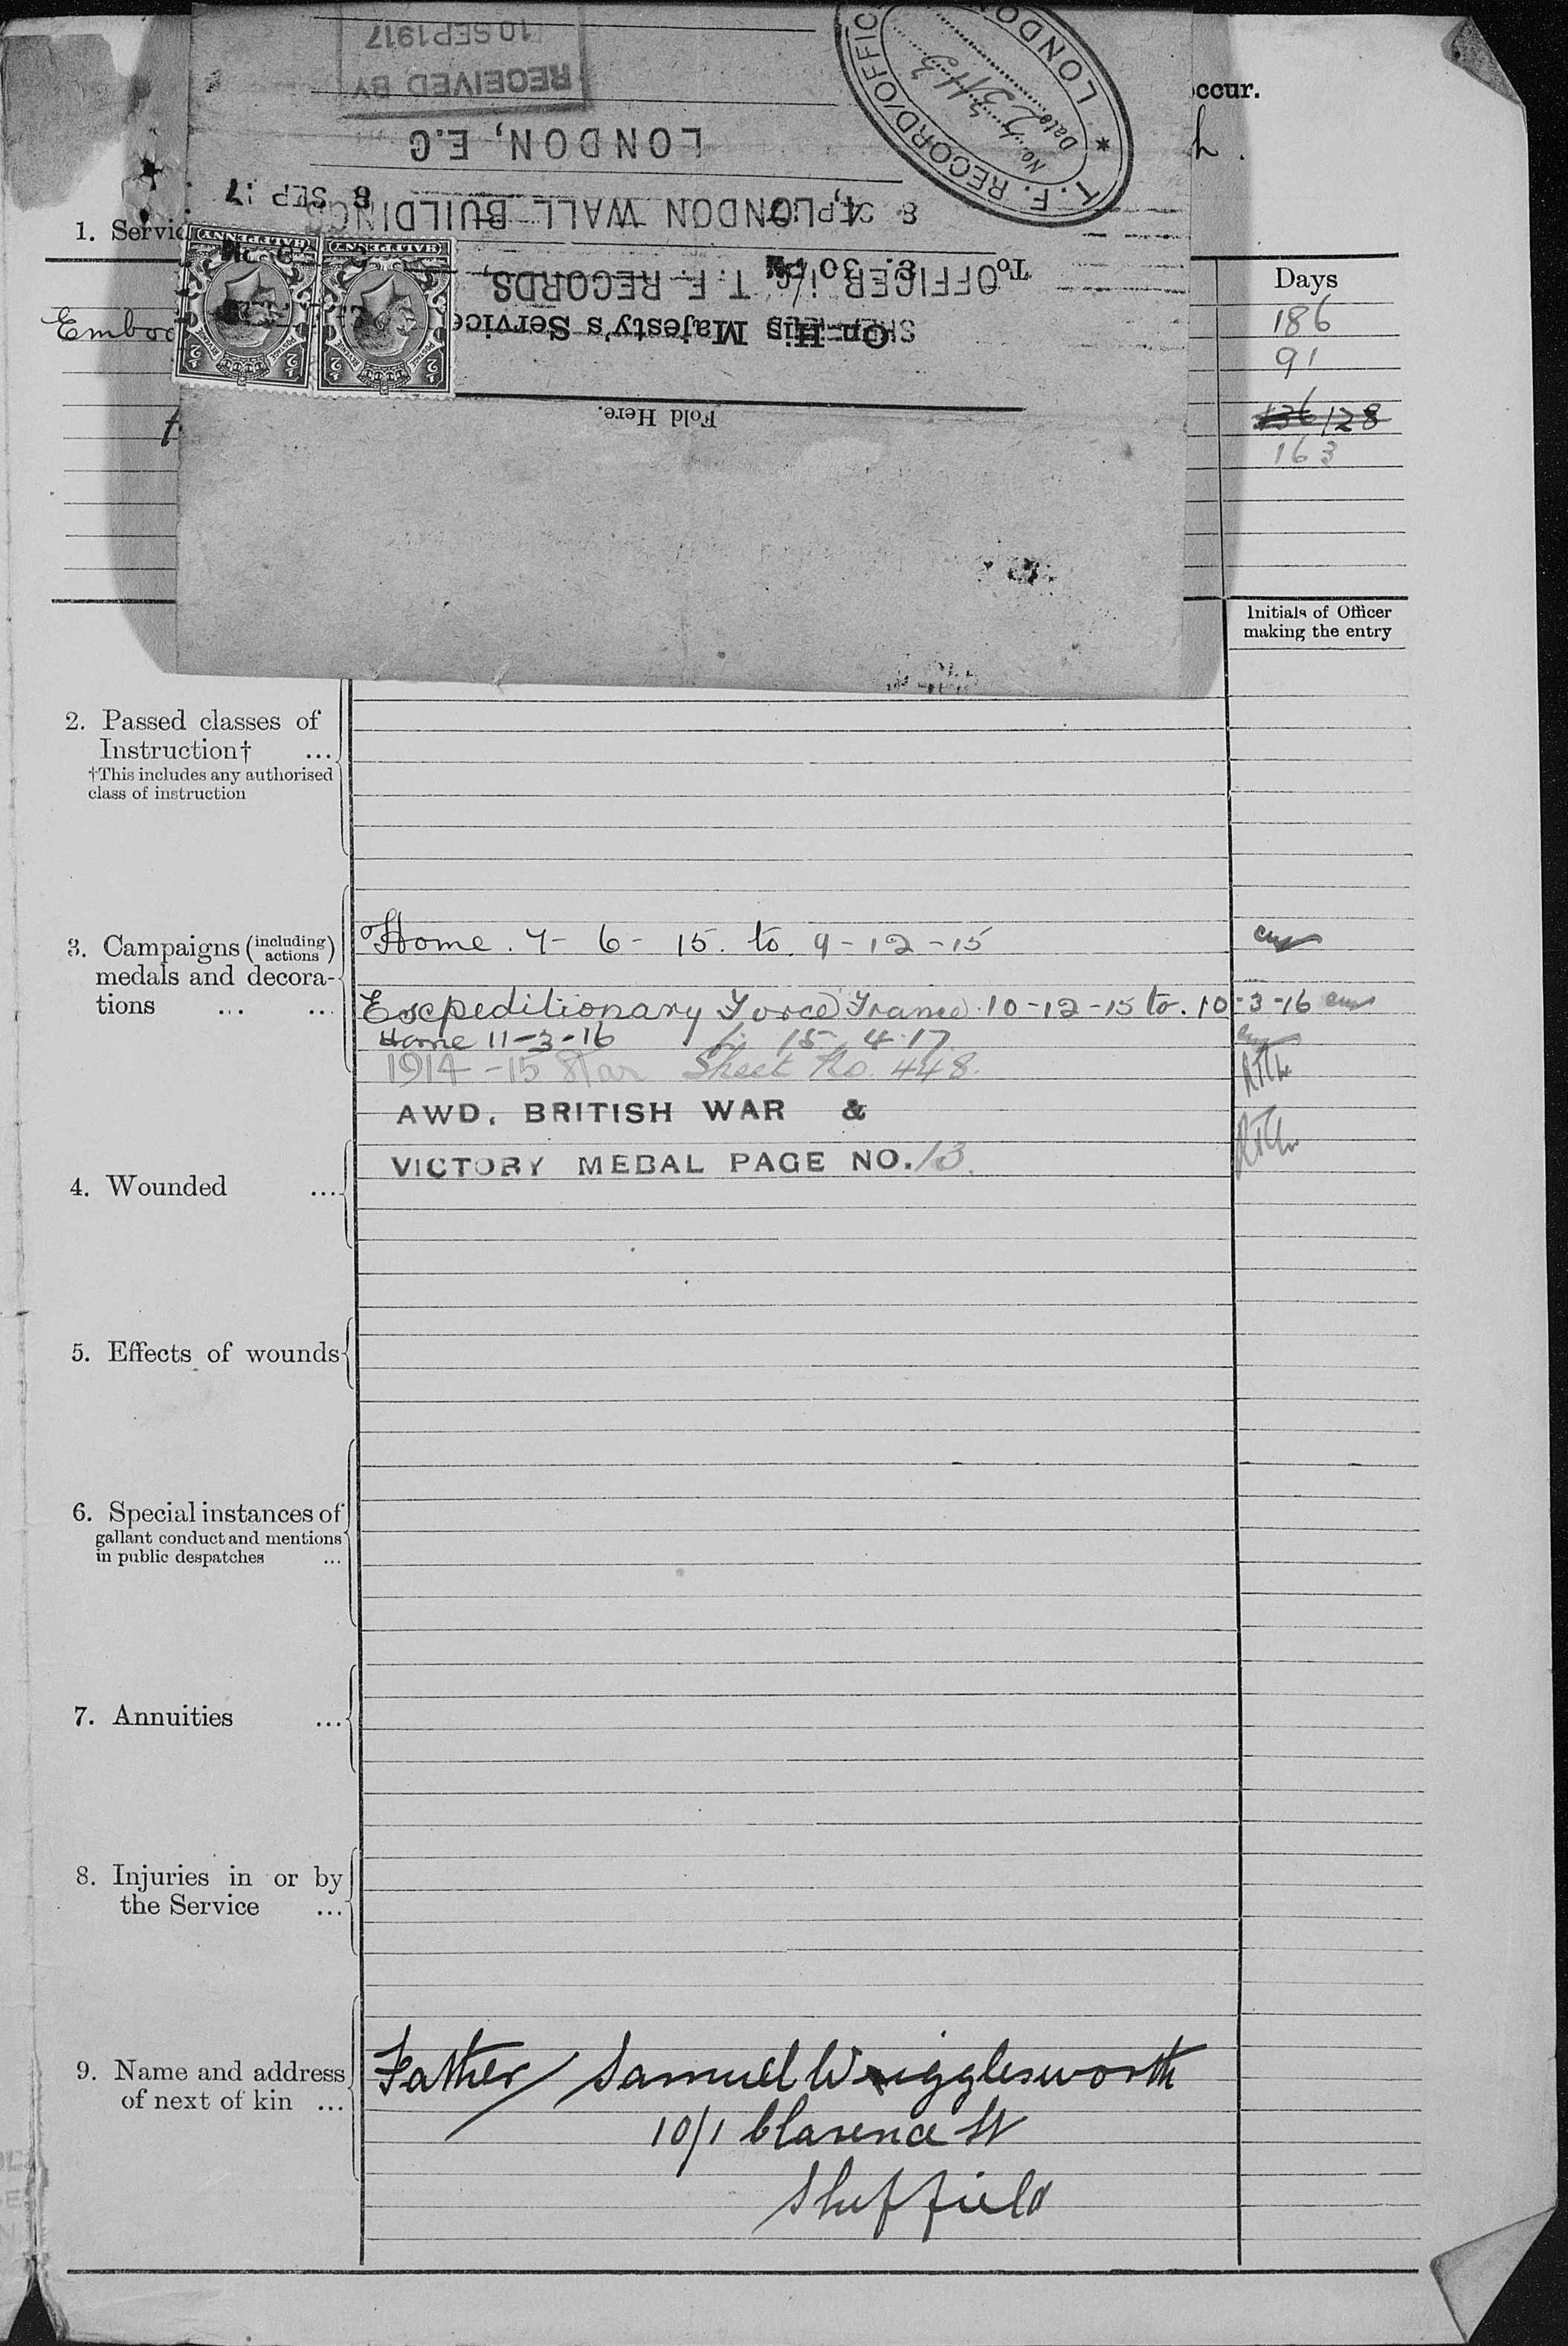 RECEIVED BY
10 SEP 1917
T. F. RECORD OFFIC
LONDO
No.
Date
LONDON, E.C
4, LONDON WALL BUILDINGS
8 SEP 17
To OFFICER i/c T. F. RECORDS,
On His Majesty's Service
HALFPENNY HALFPENNY
POSTAGE REVENUE POSTAGE REVENUE
½ ½ ½ ½
Fold Here.
occur.
h.
1. Servic
Days
Emboc
186
91
136 128
163
Initials of Officer
making the entry
2. Passed classes of
Instruction† ...
†This includes any authorised
class of instruction
3. Campaigns (including actions)
medals and decora-
tions ... ...
Home. 7-6-15. to. 9-12-15
Expeditionary Force France 10-12-15 to. 10-3-16
Home 11-3-16 to 15 4.17
1914-15 Star Sheet No. 448.
AWD. BRITISH WAR &
VICTORY MEDAL PAGE NO. 13.
4. Wounded ...
5. Effects of wounds
6. Special instances of
gallant conduct and mentions
in public despatches ...
7. Annuities ...
8. Injuries in or by
the Service ...
9. Name and address
of next of kin ...
Father / Samuel Wrigglesworth
10/1 Clarence St
Sheffield